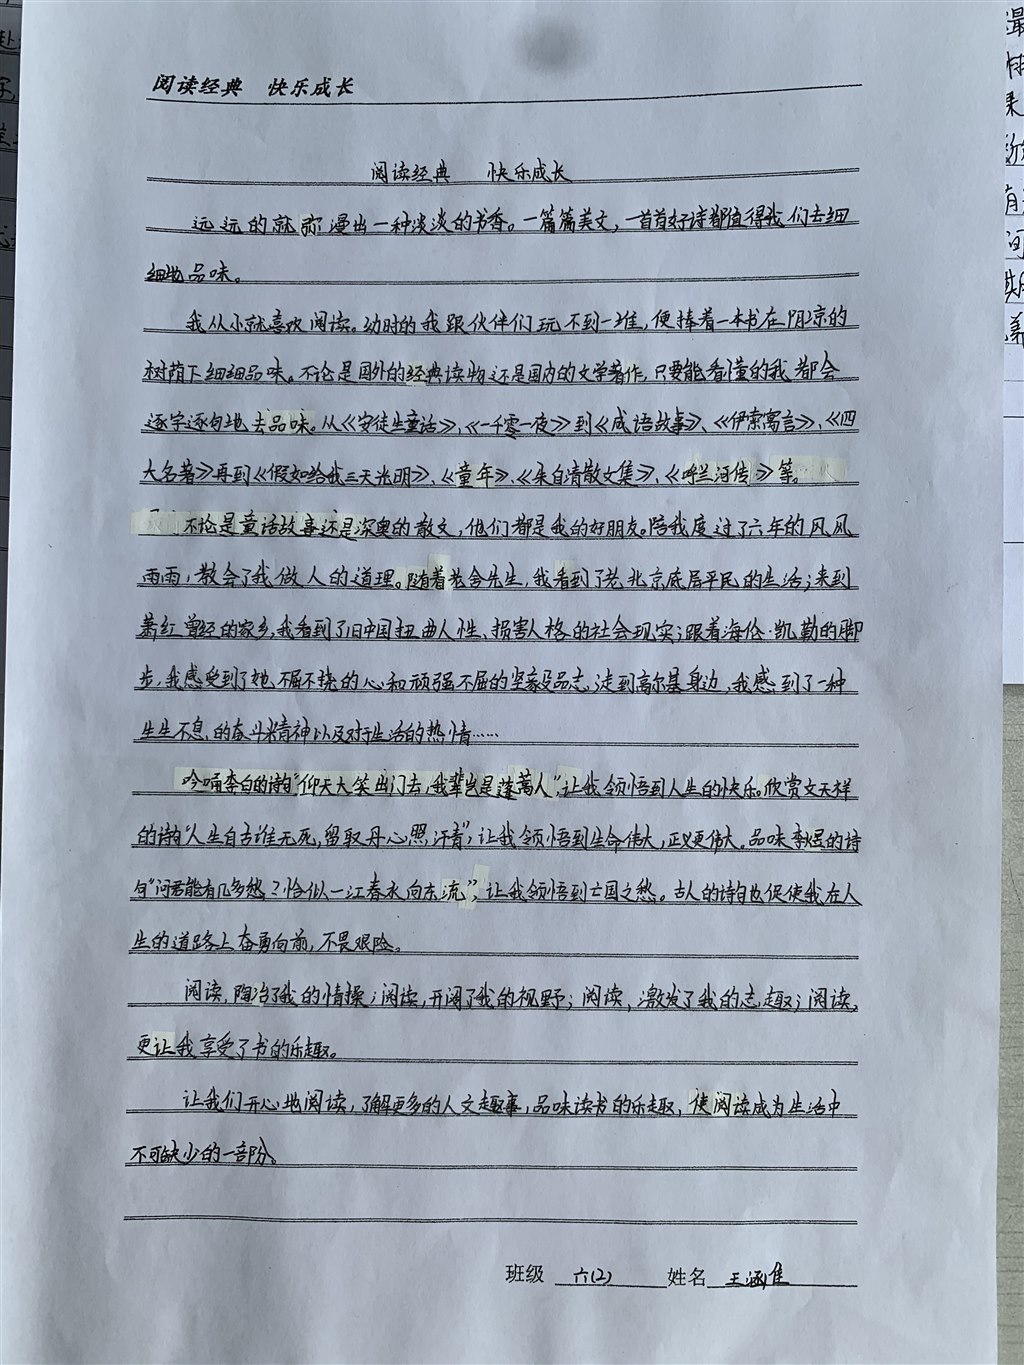 阅读经典 快乐成长
阅读经典 快乐成长
远远的就弥漫出一种淡淡的书香。一篇篇美文，一首首好诗都值得我们去细
细地品味。
我从小就喜欢阅读。幼时的我跟伙伴们玩不到一堆，便捧着一本书在阴凉的
树荫下细细品味。不论是国外的经典读物还是国内的文学著作，只要能看懂的我都会
逐字逐句地去品味。从《安徒生童话》、《一千零一夜》到《成语故事》、《伊索寓言》、《四
大名著》再到《假如给我三天光明》、《童年》、《朱自清散文集》、《呼兰河传》等。
不论是童话故事还是深奥的散文，他们都是我的好朋友。陪我度过了六年的风风
雨雨，教会了我做人的道理。随着老舍先生，我看到了老北京底层平民的生活；来到
萧红曾经的家乡，我看到了旧中国扭曲人性、损害人格的社会现实；跟着海伦·凯勒的脚
步，我感受到了她不屈不挠的心和顽强不屈的坚毅品志，走到高尔基身边，我感到了一种
生生不息的奋斗精神以及对于生活的热情……
吟诵李白的诗句“仰天大笑出门去，我辈岂是蓬蒿人”，让我领悟到人生的快乐。欣赏文天祥
的诗句“人生自古谁无死，留取丹心照汗青”，让我领悟到生命伟大，正义更伟大。品味李煜的诗
句“问君能有几多愁？恰似一江春水向东流”，让我领悟到亡国之愁。古人的诗句也促使我在人
生的道路上奋勇向前，不畏艰险。
阅读，陶冶了我的情操；阅读，开阔了我的视野；阅读，激发了我的志趣；阅读，
更让我享受了书的乐趣。
让我们开心地阅读，了解更多的人文趣事，品味读书的乐趣，使阅读成为生活中
不可缺少的一部分。
班级 六(2) 姓名 王涵佳